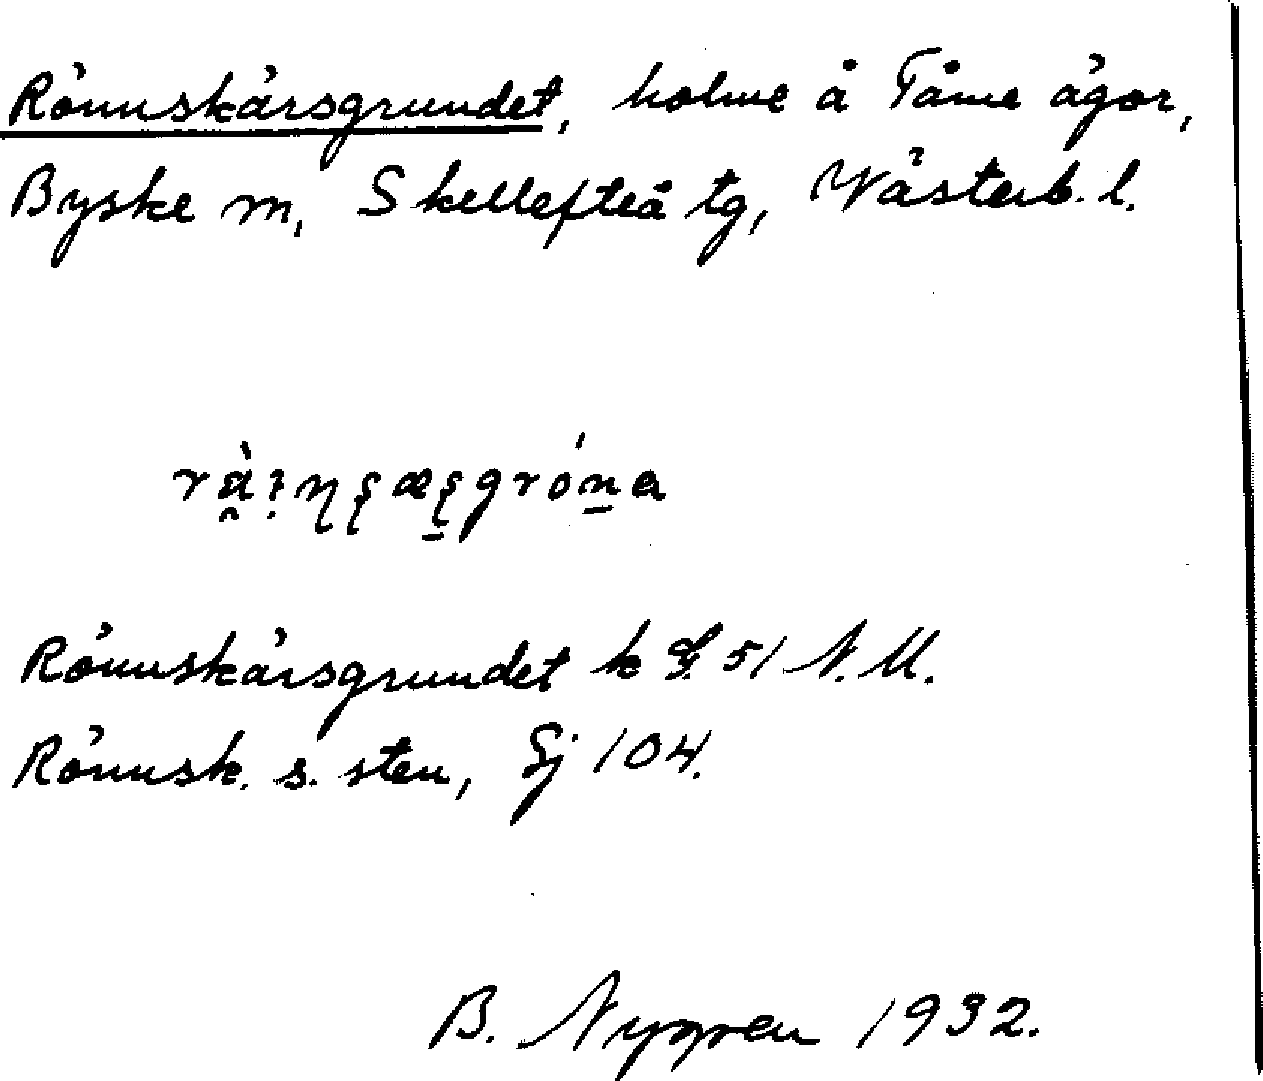 Rönnskärsgrundet, holme å Tåme ägor,
Byske sn, Skellefteå tg, Västerb. l.
Rönnskärsgrundet k G. 51 N.M.
Rönnsk. s. sten, Sj 104.
B. Nygren 1932.